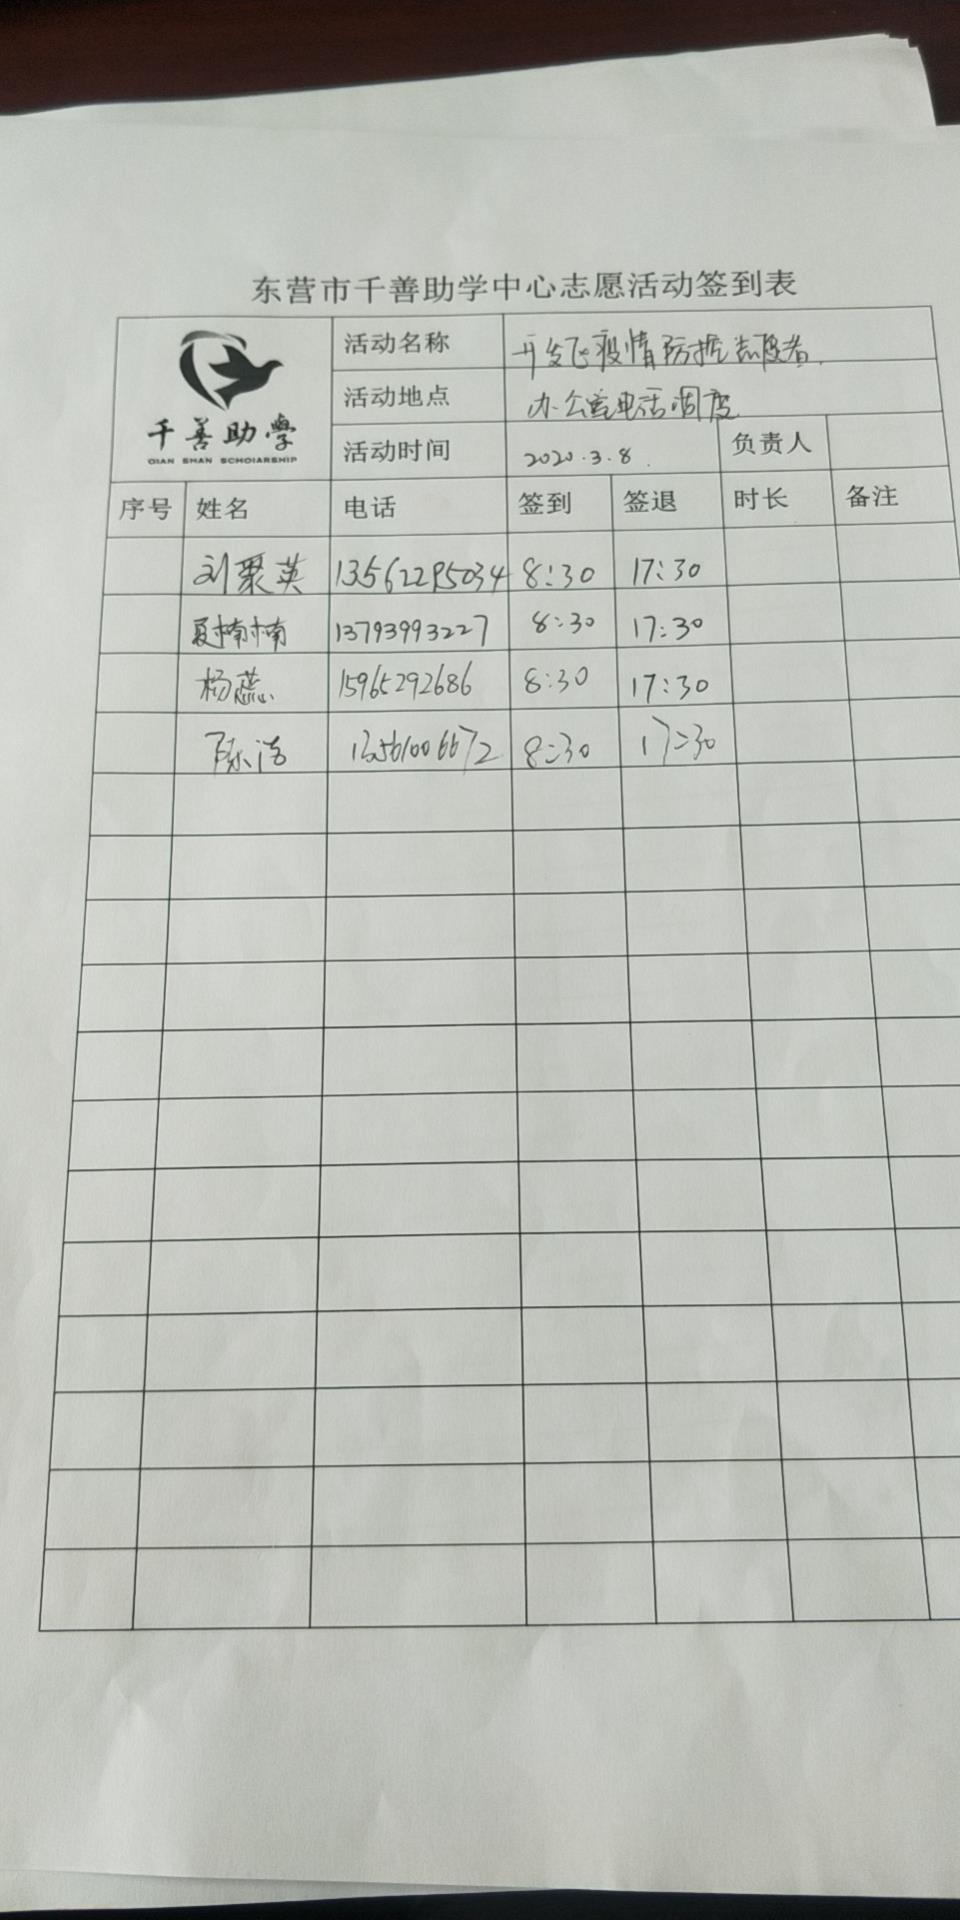 东营市千善助学中心志愿活动签到表
千善助學
QIAN SHAN SCHOIARSHIP
活动名称 开发区疫情防控志愿者.
活动地点 办公室电话调度
活动时间 2020.3.8. 负责人
序号 姓名 电话 签到 签退 时长 备注
刘聚英 13562295034 8:30 17:30
夏楠楠 13793993227 8:30 17:30
杨蕊 15965292686 8:30 17:30
陈洁 13561006672 8:30 17:30